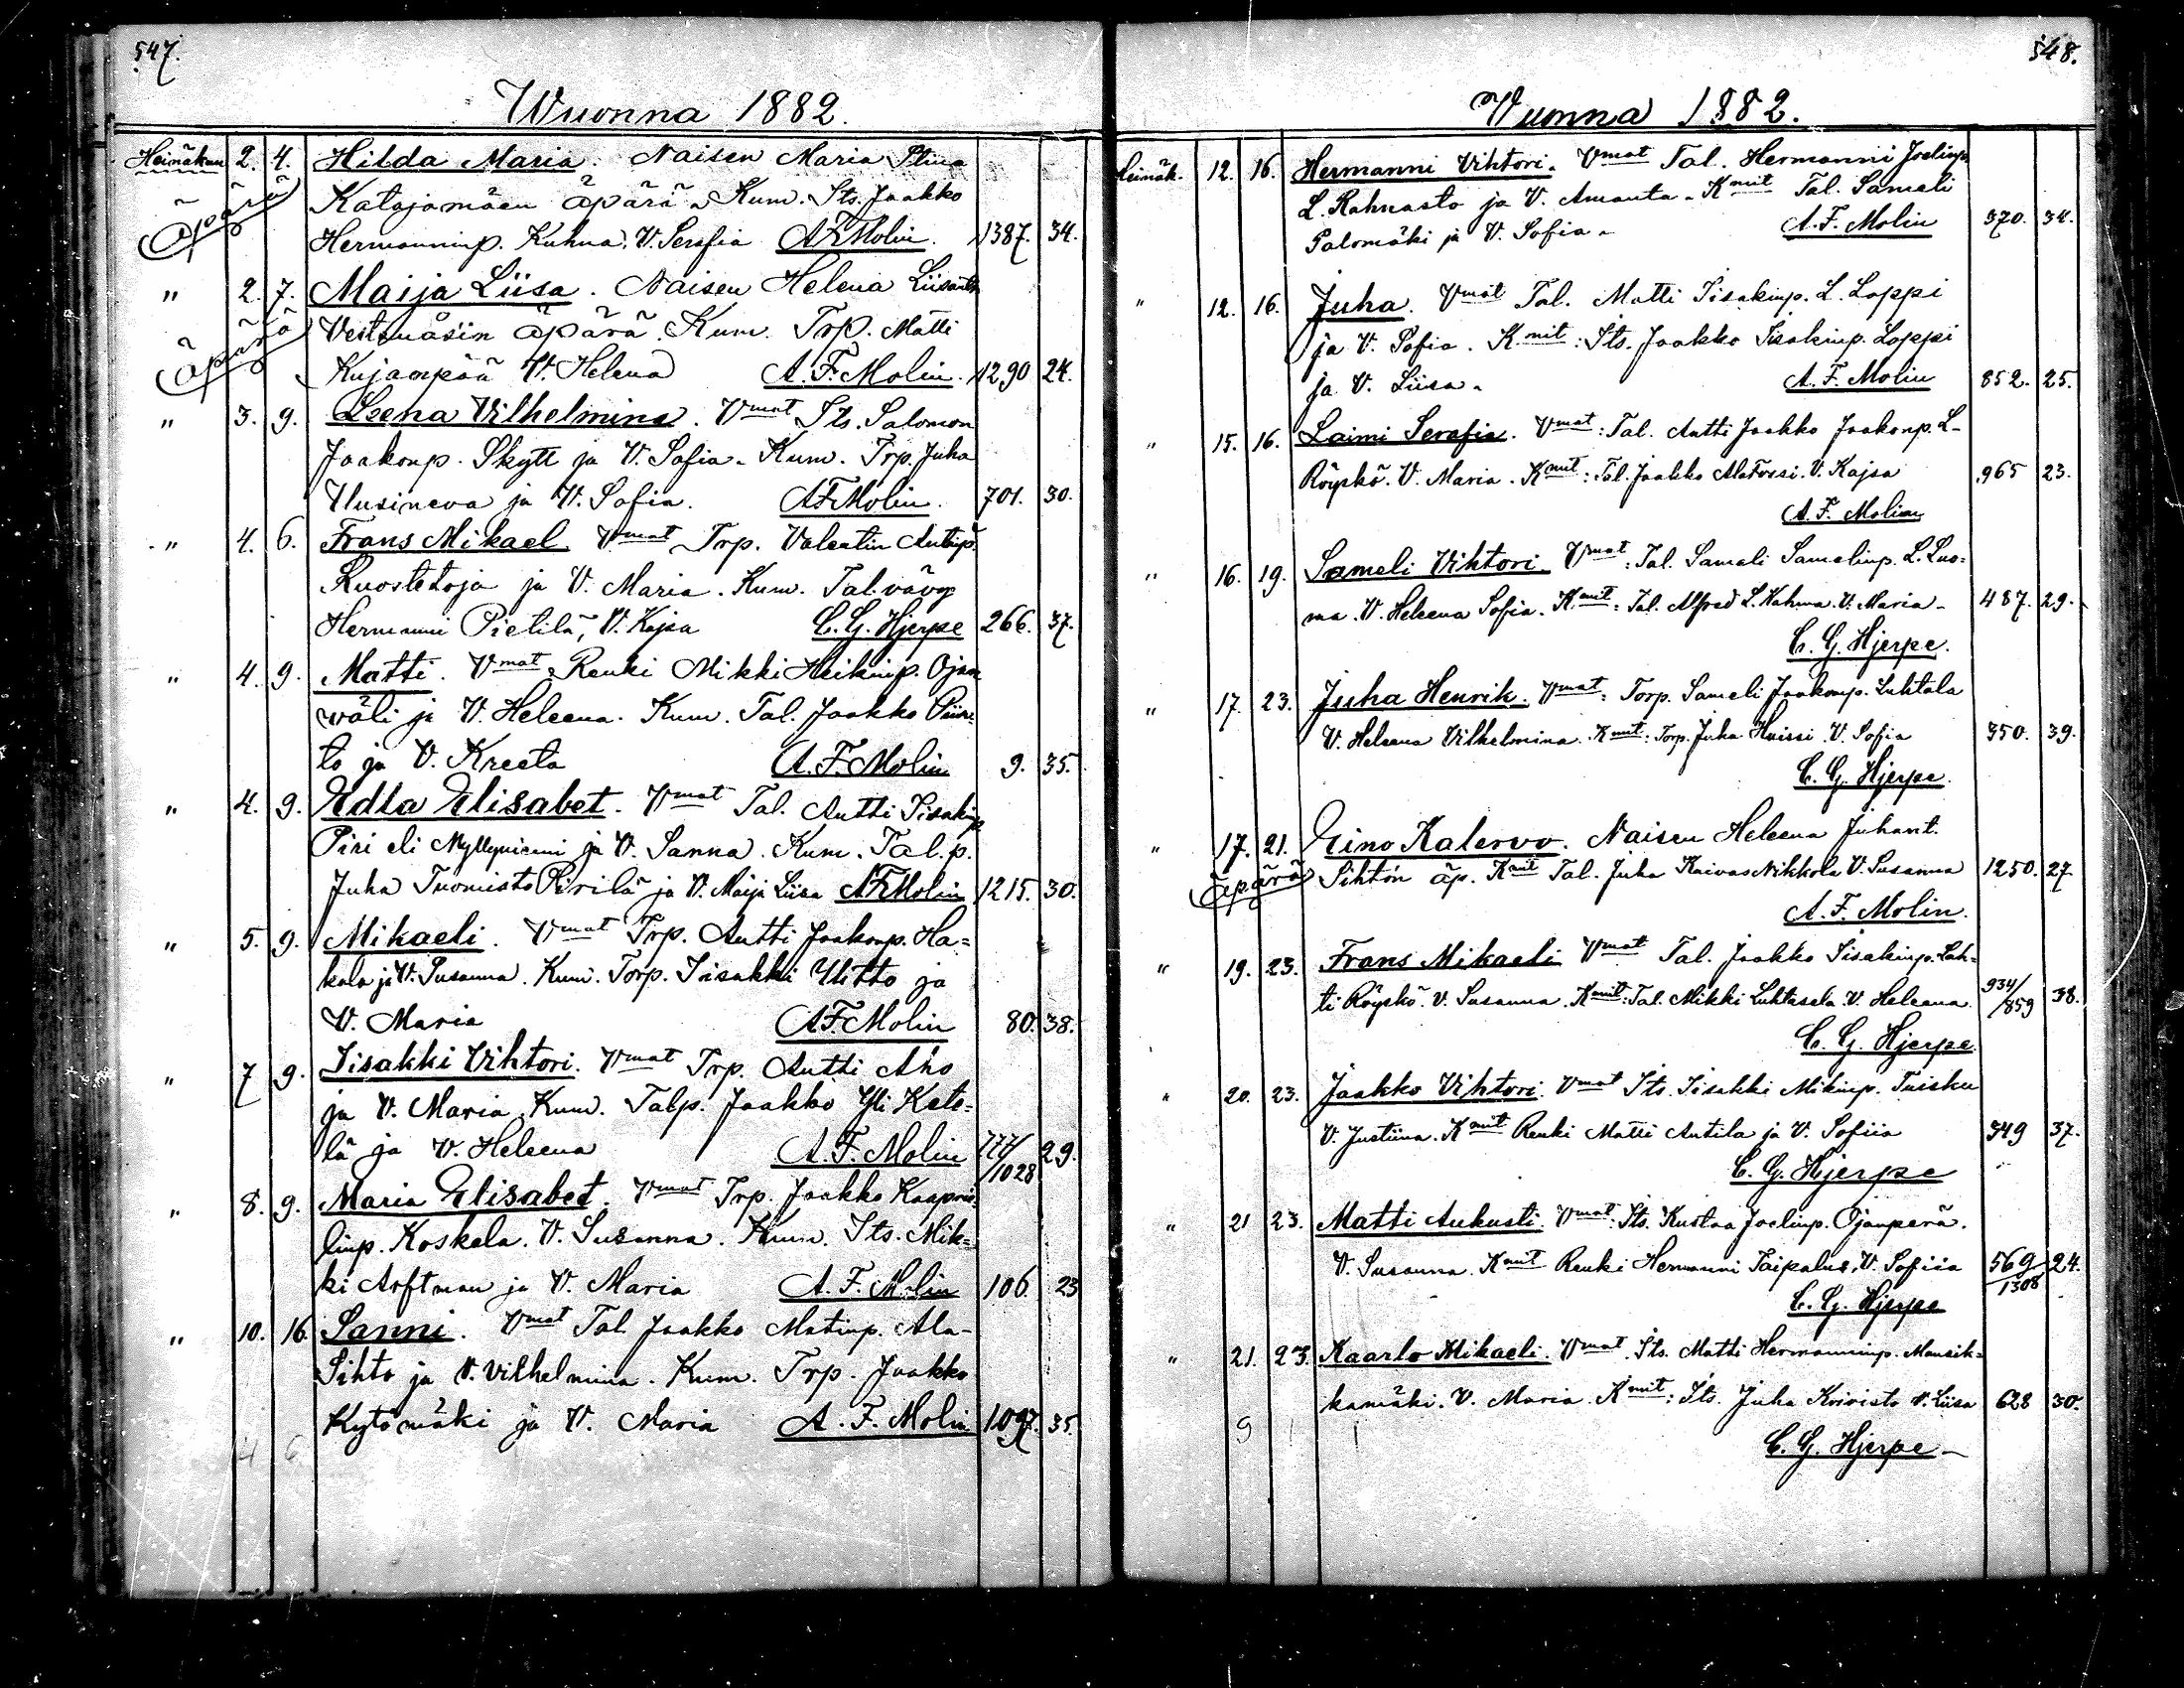 547.
Wuonna 1882.
Heinäkuu 2. 4. Hilda Maria. Naisen Maria Stina
Äpärä Katajamäen äpärä. Kum. Its. Jaakko
Hermanninp. Kuhna, V. Serafia A F Molin. 1387. 34.
" 2. 7. Maija Liisa. Naisen Helena
Äpärä Vestmäsin äpärä. Kum. Trp. Matti
Kujanpää V. Helena A. F. Molin. 1290 24.
" 3. 9. Leena Vilhelmina. Vmat Its. Salomon
Jaakonp. Skytt ja V. Sofia. Kum. Trp. Juha
Uusineva ja V. Sofia. A F Molin. 701. 30.
" 4. 6. Frans Mikael. Vmat Trp. Valentin Antinp.
Ruostetoja ja V. Maria. Kum. Tal. vävy
Hermanni Pietilä, V. Kajsa C. G. Hjerpe 266. 37.
" 4. 9. Matti. Vmat Renki Mikki Heikinp. Ojan
väli ja V. Heleena. Kum. Tal. Jaakko Piiri
to ja V. Kreeta A. F. Molin 9. 35.
" 4. 9. Edla Elisabet. Vmat Tal. Antti Iisakinp
Piri eli Myllyniemi ja V. Sanna. Kum. Tal. p.
Juha Tuomisto Pirilä ja V. Maija Liisa A F Molin 1215. 30.
" 5. 9. Mikaeli. Vmat Trp. Antti Jaakonp. Ha=
kola ja V. Susanna. Kum. Torp. Iisakki Ylitto ja
V. Maria A. F. Molin 80. 38.
" 7 9. Iisakki Vihtori. Vmat Trp. Antti Aho
ja V. Maria. Kum. Talp. Jaakko Yli Keto=
la ja V. Heleena A. F. Molin 777/1028 29.
" 8. 9. Maria Elisabet. Vmat Trp. Jaakko Kaaprie
linp. Koskela. V. Susanna. Kum. Its. Mik=
ki Arftman ja V. Maria A. F. Molin 106 23
" 10. 16. Sanni. Vmat Tal. Jaakko Matinp. Ala-
Sihto ja V. Vilhelmina. Kum. Trp. Jaakko
Kytömäki ja V. Maria A. F. Molin 1097. 35.
4 6
548.
Vuonna 1882.
Heinäk. 12. 16. Hermanni Vihtori. Vmat Tal. Hermanni Joelinp.
L. Rahnasto ja V. Amanta. Kmit Tal. Sameli
Palomäki ja V. Sofia. A. F. Molin 370. 34.
" 12. 16. Juha. Vmat Tal. Matti Iisakinp. L. Loppi
ja V. Sofia. Kmit: Its. Jaakko Iisakinp. Loppi
ja V. Liisa. A. F. Molin 852. 25.
" 15. 16. Laimi Serafia. Vmat: Tal. Antti Jaakko Jaakonp. L-
Röyskö. V. Maria. Kmit: Tal. Jaakko AlaTorsi. V. Kajsa 965 23.
A. F. Molin
" 16. 19. Sameli Vihtori. Vmat: Tal. Sameli Samelinp. L. Luo=
ma. V. Heleena Sofia. Kmit: Tal. Alfred L. Kahma. V. Maria. 487. 29.
C. G. Hjerpe.
" 17. 23. Juha Henrik. Vmat: Torp. Sameli Jaakonp. Luhtala
V. Heleena Vilhelmina. Kmit: Torp. Juha Huissi. V. Sofia 350. 39.
C. G. Hjerpe.
" 17. 21. Eino Kalervo. Naisen Heleena Juhant.
Äpärä Sihton äp. Kmit Tal. Juha Kaivas Nikkola V. Susanna 1250. 27.
A. F. Molin.
" 19. 23. Frans Mikaeli Vmat Tal. Jaakko Iisakinp. Lah=
ti Röyskö. V. Susanna. Kmit: Tal. Mikki Luhtasela. V. Heleena. 934/859 38.
C. G. Hjerpe.
" 20. 23. Jaakko Vihtori. Vmat Its. Iisakki Mikinp. Tuisku
V. Justiina. Kmit Renki Matti Antila ja V. Sofiia 349 37.
C. G. Hjerpe
" 21 23. Matti Aukusti. Vmat: Its. Kustaa Joelinp. Ojanperä.
V. Susanna. Kmit Renki Hermanni Taipalus, V. Sofiia 569/1308 24.
C. G. Hjerpe
" 21. 23. Kaarlo Mikaeli. Vmat. Its. Matti Hermanninp. Mansik=
kamäki. V. Maria. Kmit: Its. Juha Koivisto V. Liisa 628 30.
9 C. G. Hjerpe